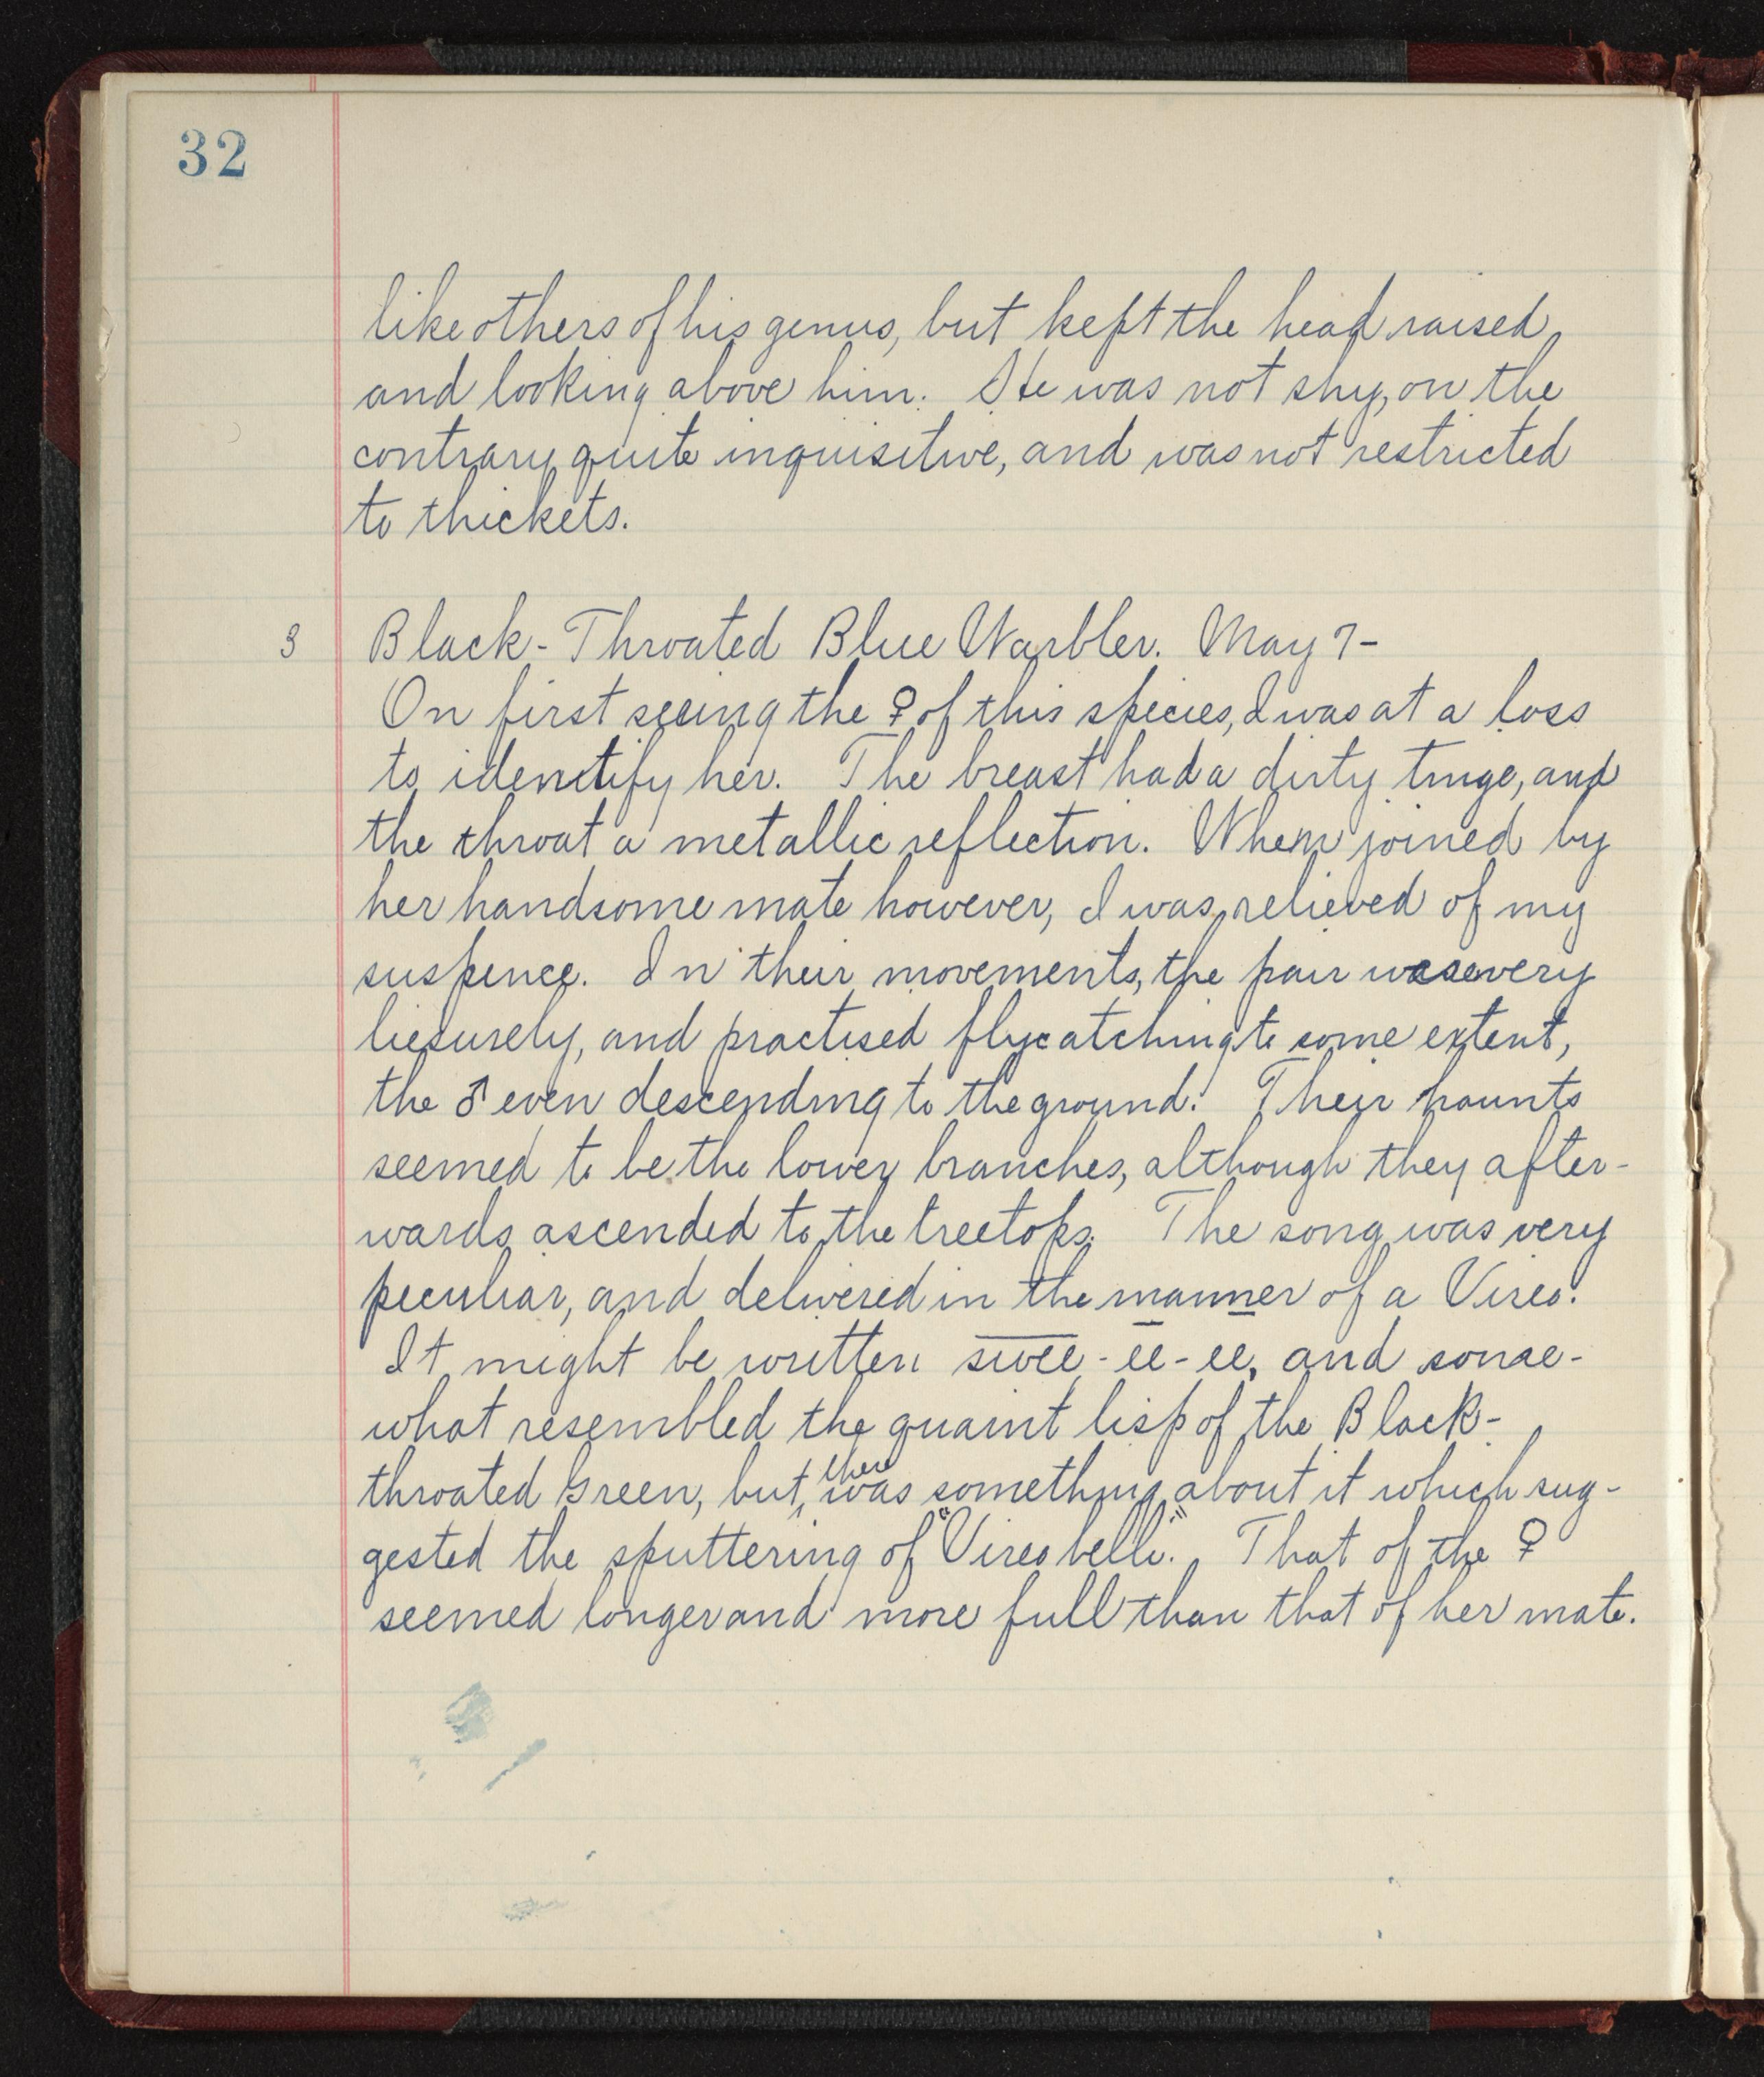 32
like others of his genus, but kept the head raised,
and looking above him. He was not shy, on the
contrary, quite inquisitive, and was not restricted
to thickets.
3 Black-Throated Blue Warbler. May 7-
On first seeing the ♀ of this species, I was at a loss
to identify her. The breast had a dirty tinge, and
the throat a metallic reflection. When joined by
her handsome mate however, I was relieved of my
suspence. In their movements, the pair were very
liesurely, and practised flycatching to some extent,
the ♂ even descending to the ground. Their haunts
seemed to be the lower branches, although they after-
wards ascended to the treetops. The song was very
peculiar, and delivered in the manner of a Vireo.
It might be written swee-ee-ee, and some-
what resembled the quaint lisp of the Black-
throated Green, but there was something about it which sug-
gested the sputtering of "Vireo belli." That of the ♀
seemed longer and more full than that of her mate.